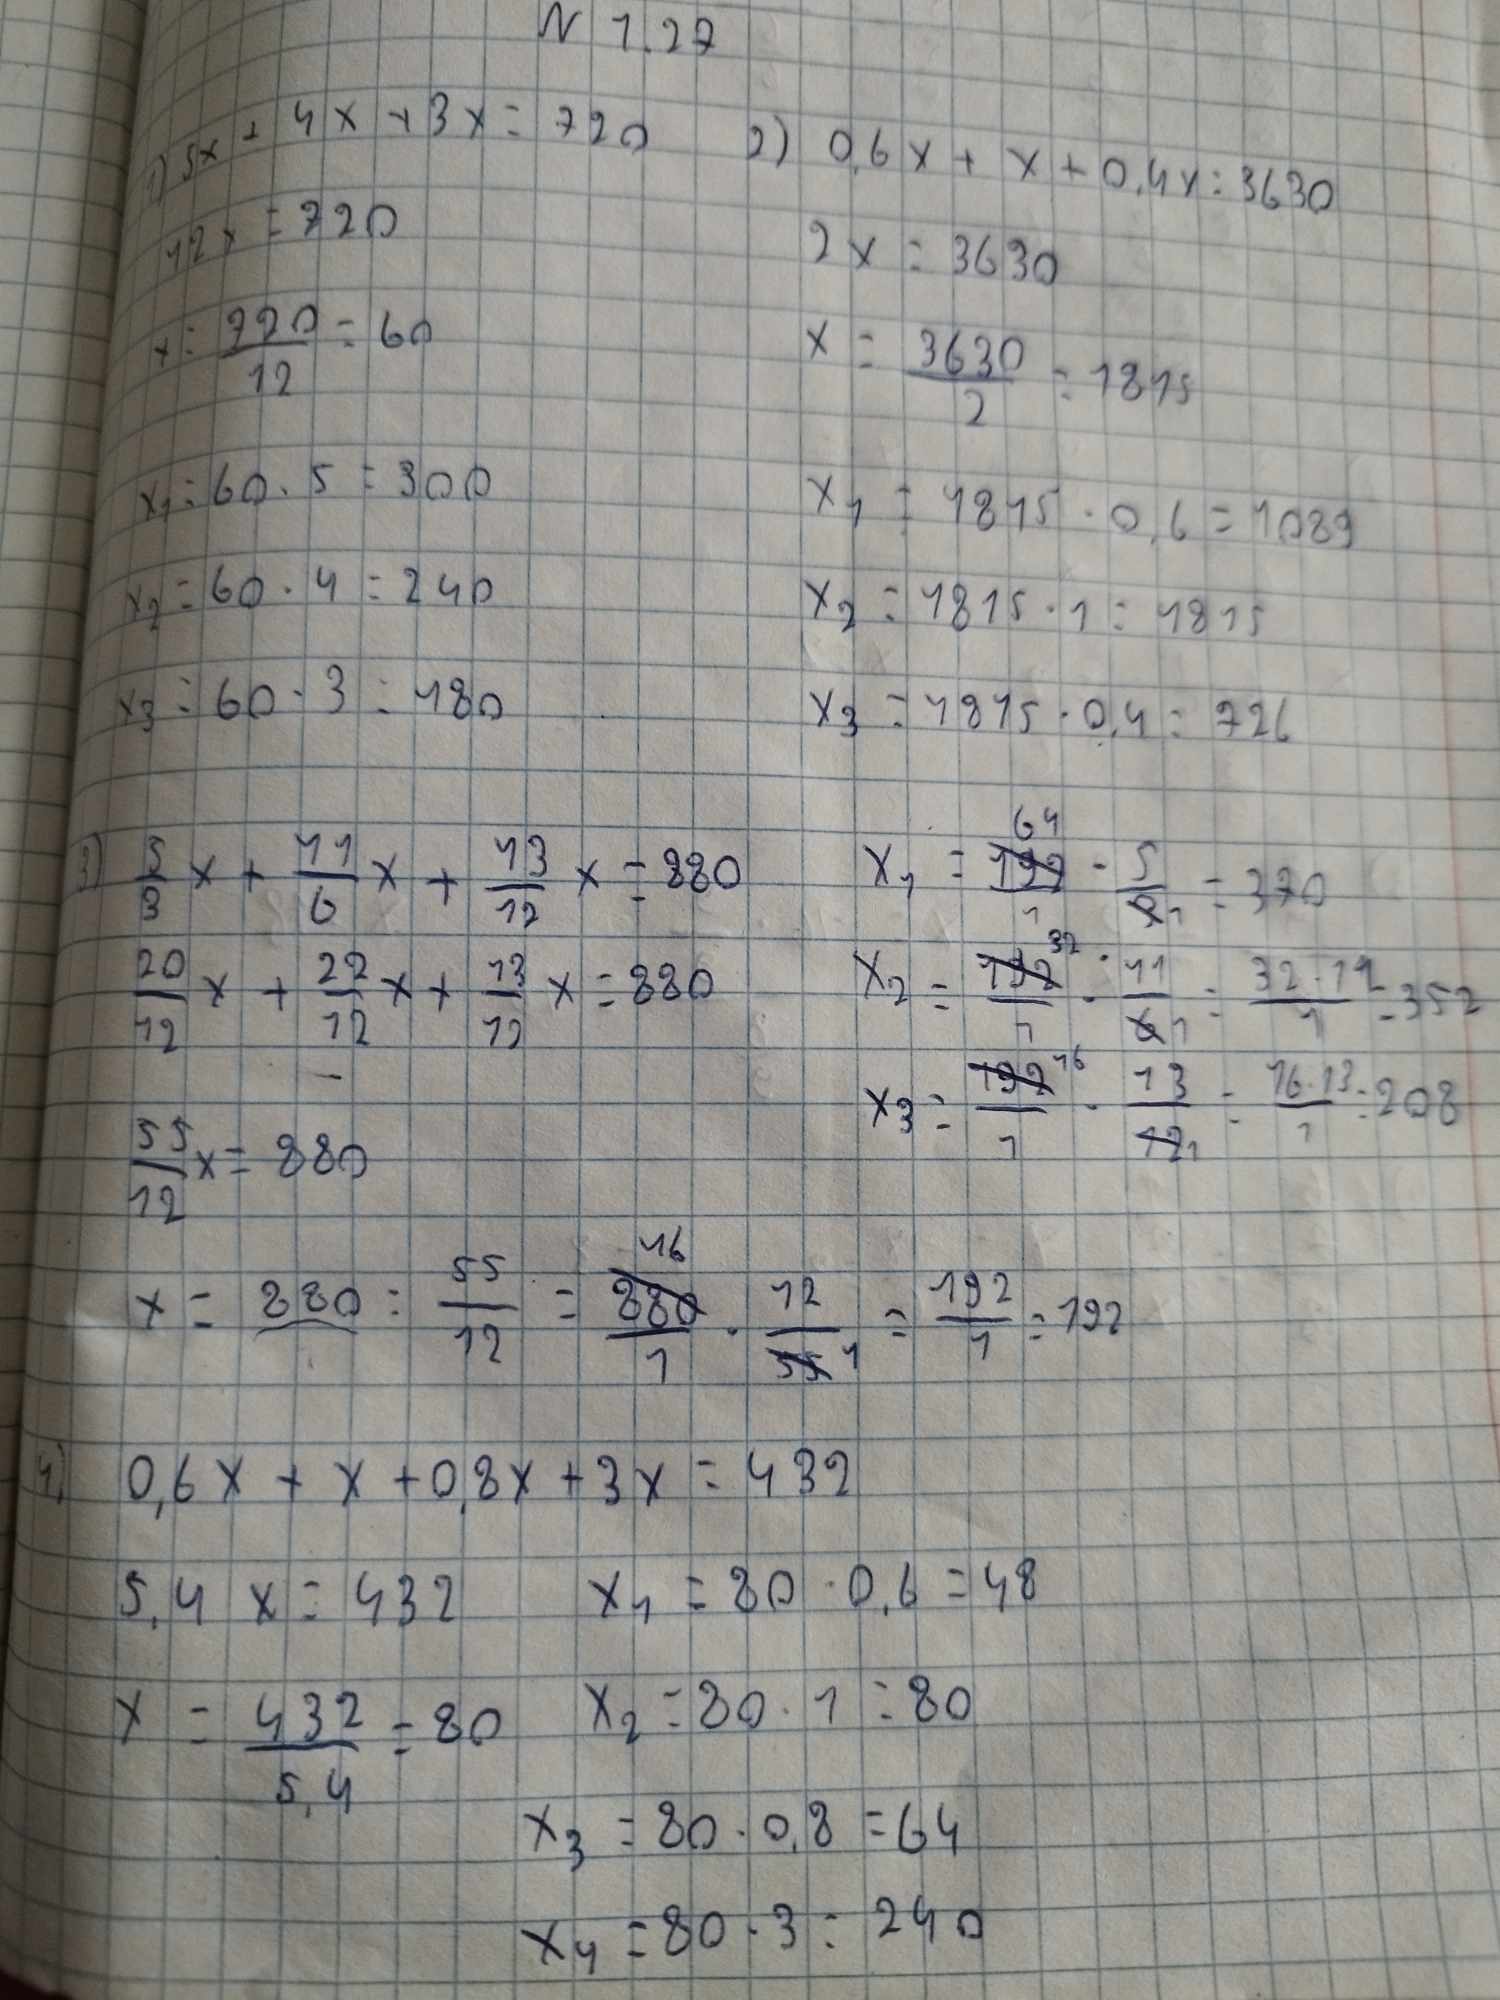 N 1.27
1) 5x + 4x + 3x = 720
12x = 720
x = 720/12 = 60
x₁ = 60 · 5 = 300
x₂ = 60 · 4 = 240
x₃ = 60 · 3 = 180
2) 0,6x + x + 0,4x = 3630
2x = 3630
x = 3630/2 = 1815
x₁ = 1815 · 0,6 = 1089
x₂ = 1815 · 1 = 1815
x₃ = 1815 · 0,4 = 726
3) 5/3 x + 11/6 x + 13/12 x = 880
20/12 x + 22/12 x + 13/12 x = 880
55/12 x = 880
x = 880 : 55/12 = 880 16/1 · 12/55 1 = 192/1 = 192
x₁ = 192 64/1 · 5/3 1 = 320
x₂ = 192 32/1 · 11/6 1 = 32 · 11/1 = 352
x₃ = 192 16/1 · 13/12 1 = 16 · 13/1 = 208
4) 0,6x + x + 0,8x + 3x = 432
5,4x = 432
x = 432/5,4 = 80
x₁ = 80 · 0,6 = 48
x₂ = 80 · 1 = 80
x₃ = 80 · 0,8 = 64
x₄ = 80 · 3 = 240